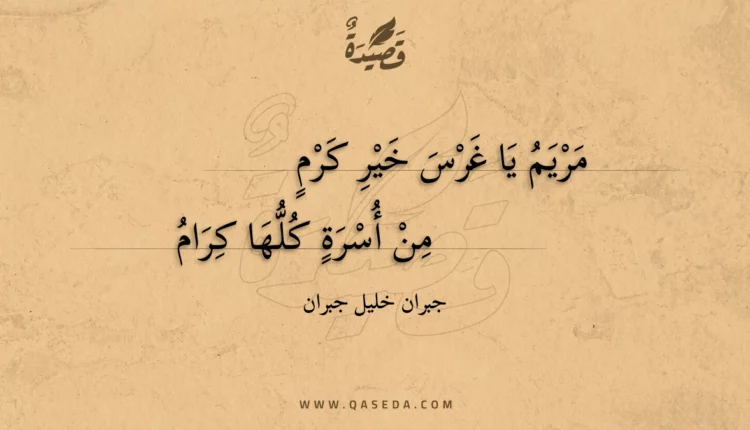 قَصِيدَةٌ
مَرْيَمُ يَا غَرْسَ خَيْرِ كَرْمٍ
مِنْ أُسْرَةٍ كُلُّهَا كِرَامُ
جبران خليل جبران
WWW.QASEDA.COM